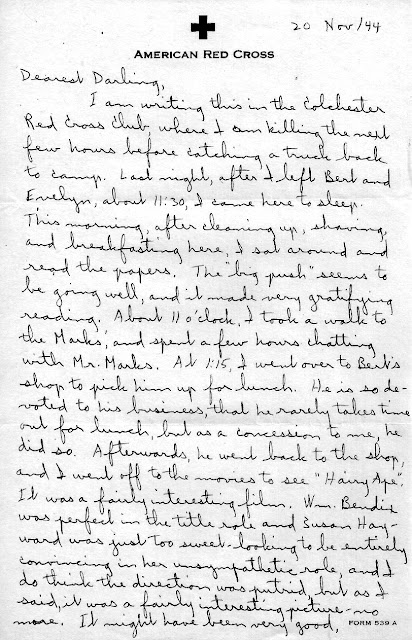 20 Nov/44
AMERICAN RED CROSS
Dearest Darling,
I am writing this in the Colchester
Red Cross Club, where I am killing the next
few hours before catching a truck back
to camp. Last night, after I left Bert and
Evelyn, about 11:30, I came here to sleep.
This morning, after cleaning up, shaving,
and breakfasting here, I sat around and
read the papers. The "big push" seems to
be going well, and it made very gratifying
reading. About 11 o'clock, I took a walk to
the Marks', and spent a few hours chatting
with Mr. Marks. At 1:15, I went over to Bert's
shop to pick him up for lunch. He is so de-
voted to his business, that he rarely takes time
out for lunch, but as a concession to me, he
did so. Afterwards, he went back to the shop,
and I went off to the movies to see "Hairy Ape".
It was a fairly interesting film. Wm. Bendix
was perfect in the title role and Susan Hay-
ward was just too sweet-looking to be entirely
convincing in her unsympathetic role, and I
do think the direction was putrid, but as I
said, it was a fairly interesting picture - no
more. It might have been very good,
FORM 539 A